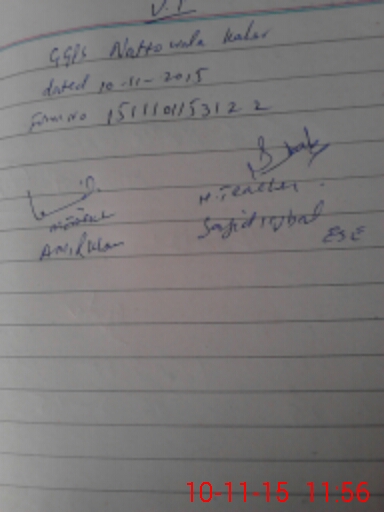 V.P
GGPS Nattowala Kalar
dated 10-11-2015
Form No 151110115312 2
H. Teacher.
Sajid iqbal
ESE
10-11-15 11:56